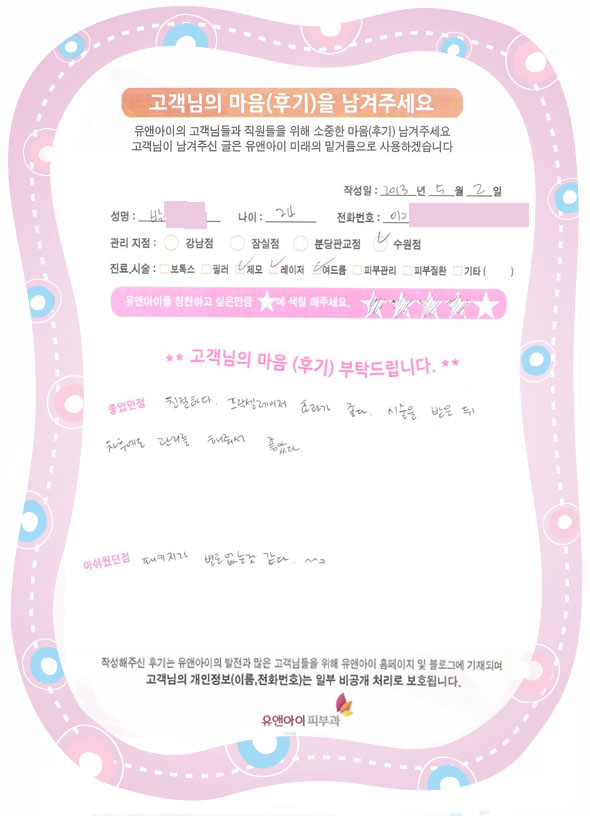 고객님의 마음(후기)을 남겨주세요
유앤아이의 고객님들과 직원들을 위해 소중한 마음(후기) 남겨주세요
고객님이 남겨주신 글은 유앤아이 미래의 밑거름으로 사용하겠습니다
작성일 : 2013 년 5 월 2 일
성명 : 박 나이 : 전화번호 : 010
관리 지점 : 강남점 잠실점 분당판교점 수원점
진료,시술 : 보톡스 필러 제모 레이저 여드름 피부관리 피부질환 기타 ( )
유앤아이를 칭찬하고 싶은만큼 ★에 색칠 해주세요.
** 고객님의 마음 (후기) 부탁드립니다. **
좋았던점 친절하다. 프락셀레이저 효과가 좋다. 시술을 받은 뒤
차후에도 관리를 해줘서 좋았다.
아쉬웠던점 패키지가 별로 없는것 같다. ^^;
작성해주신 후기는 유앤아이의 발전과 많은 고객님들을 위해 유앤아이 홈페이지 및 블로그에 기재되며
고객님의 개인정보(이름,전화번호)는 일부 비공개 처리로 보호됩니다.
유앤아이피부과